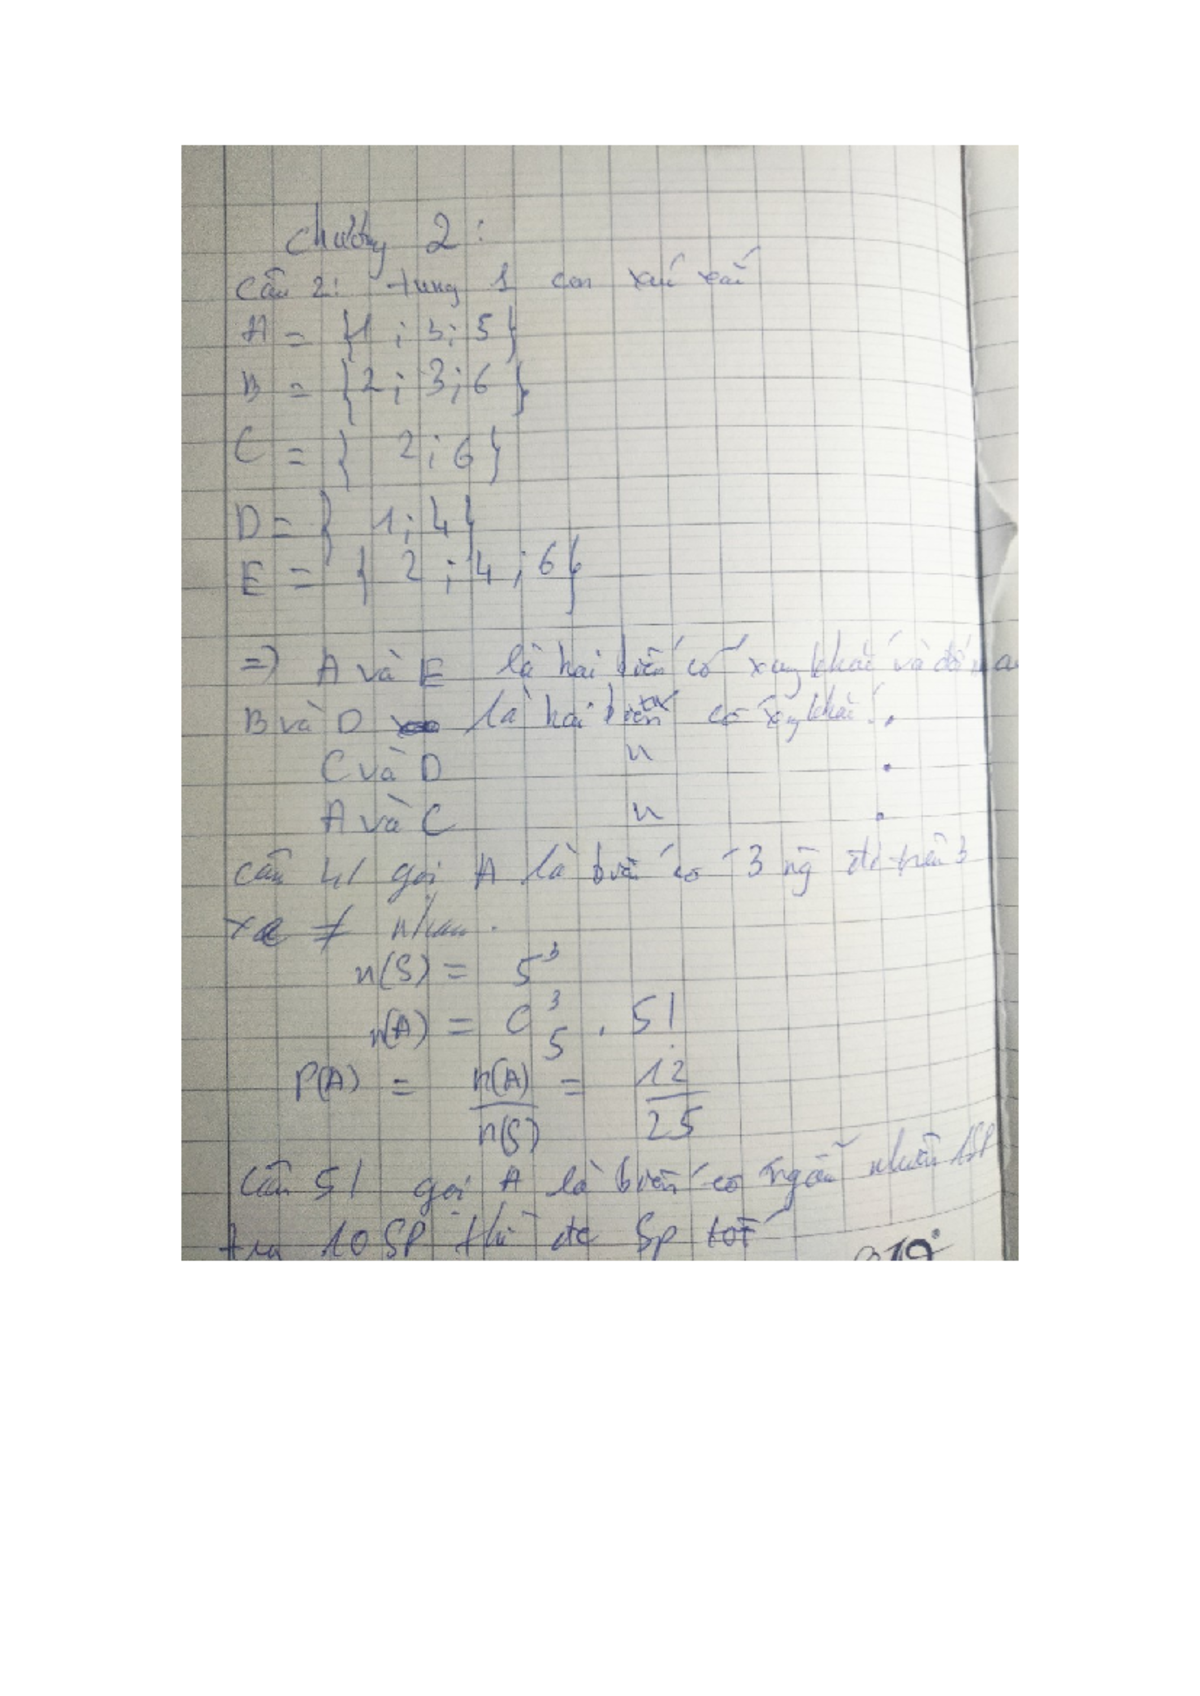 Chương 2:
Câu 2: tung 1 con xúc xắc
A = {1; 3; 5}
B = {2; 3; 6}
C = { 2; 6}
D = { 1; 4}
E = { 2; 4; 6}
=> A và E là hai biến cố xung khắc và đối
B và D là hai biến cố xung khắc.
C và D n
A và C n
Câu 4/ gọi A là biến cố 3 ng đi trên 3
xe ≠ nhau.
n(S) = 5³
n(A) = C³₅ . 5!
P(A) = n(A)/n(S) = 12/25
Câu 5/ gọi A là biến cố ngẫu nhiên 1SP
10 SP thì đc Sp tốt